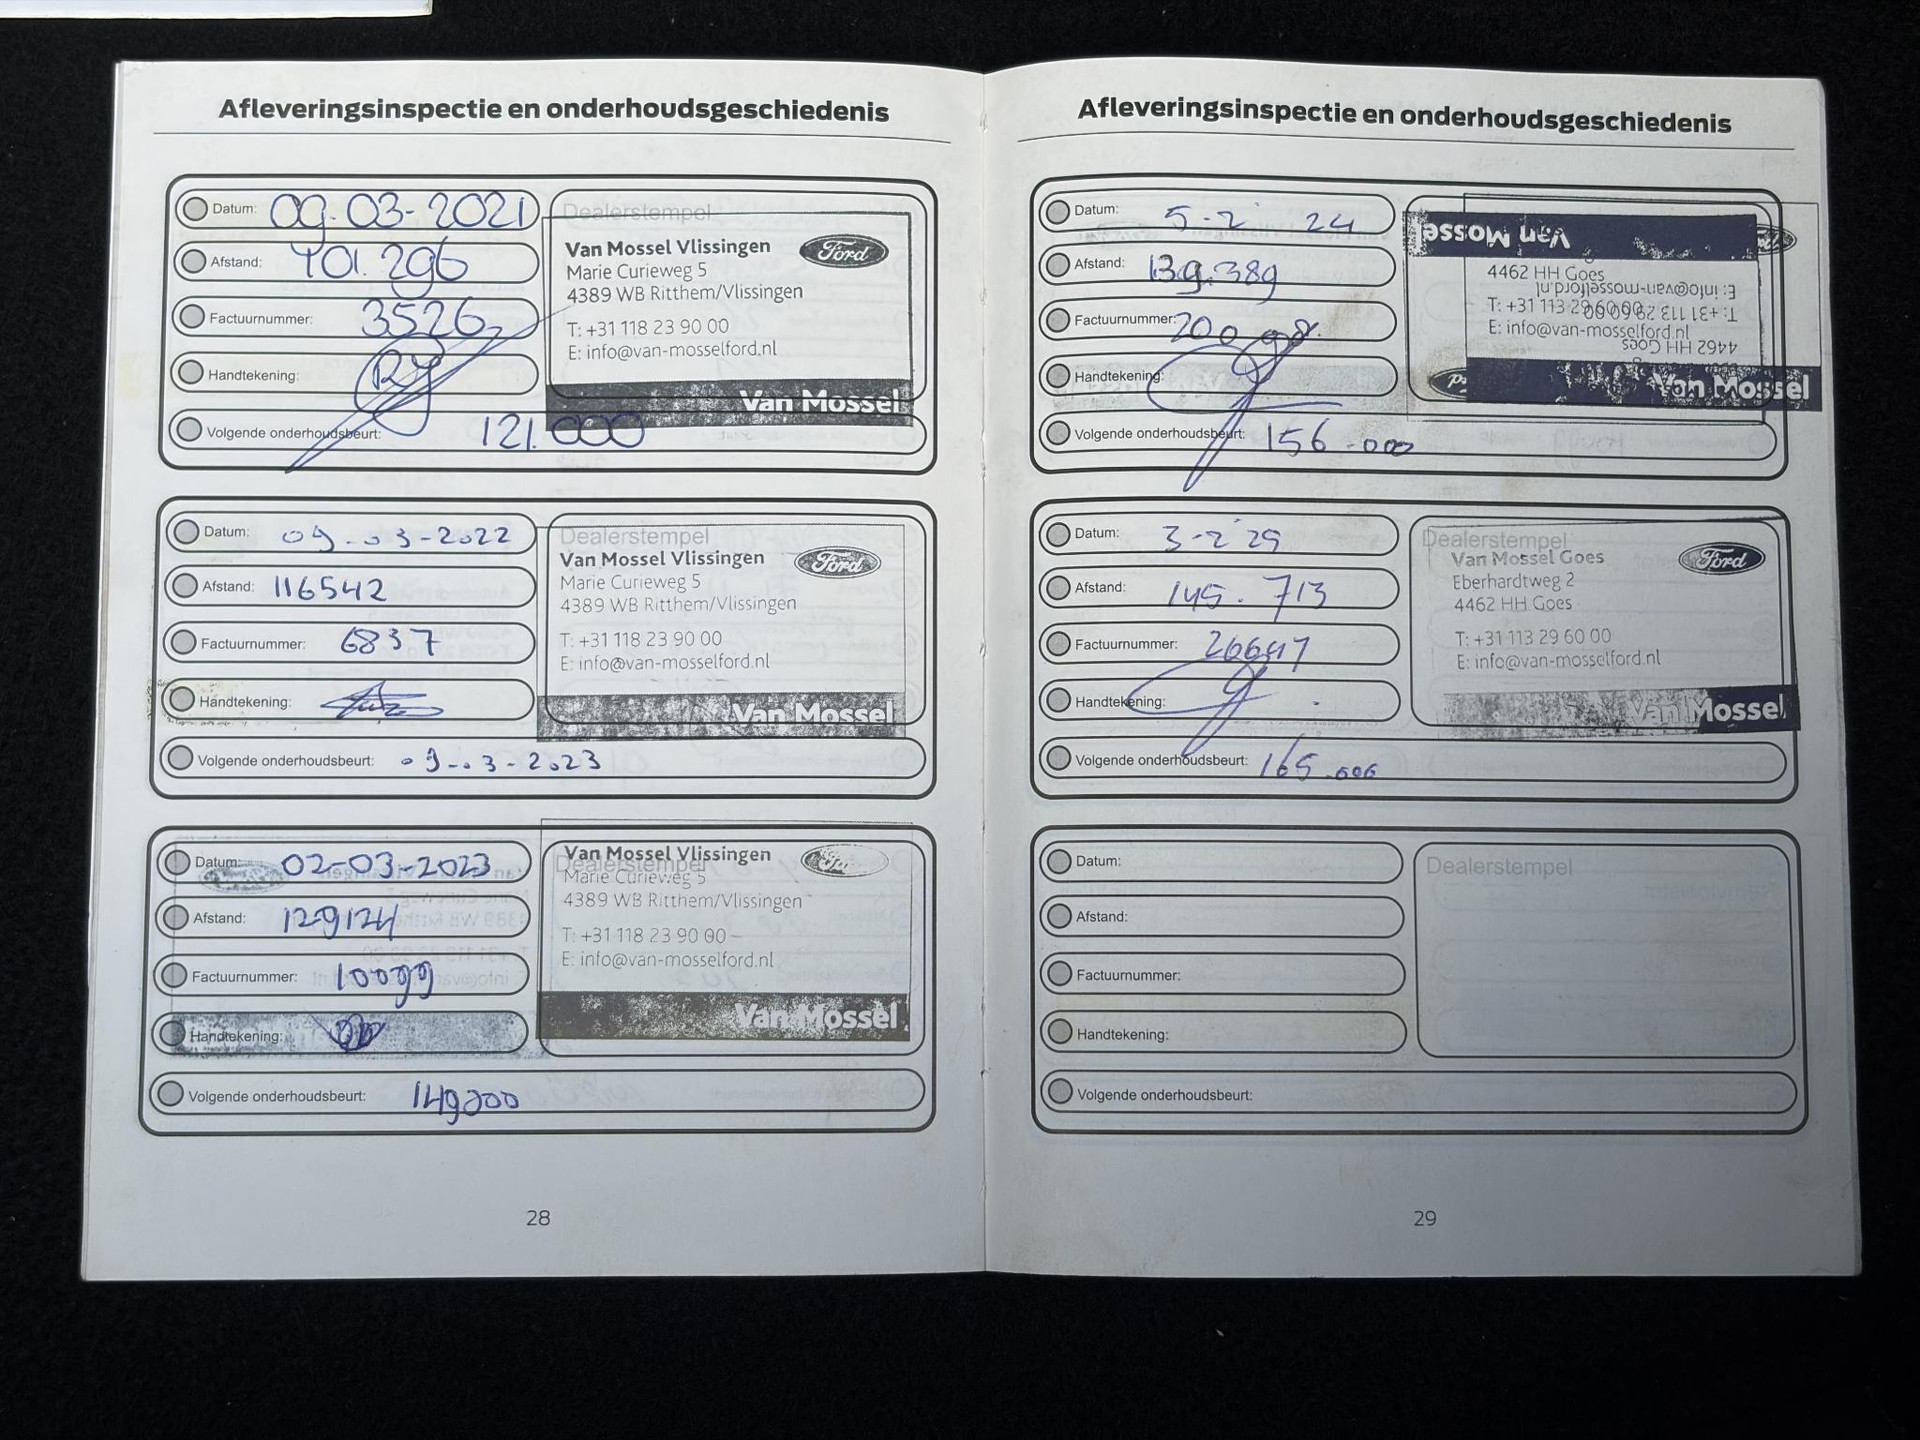 Afleveringsinspectie en onderhoudsgeschiedenis
Datum: 09-03-2021
Afstand: 101.296
Factuurnummer: 3526
Handtekening:
Volgende onderhoudsbeurt: 121.000
Dealerstempel
Van Mossel Vlissingen
Ford
Marie Curieweg 5
4389 WB Ritthem/Vlissingen
T: +31 118 23 90 00
E: info@van-mosselford.nl
Van Mossel
Datum: 09-03-2022
Afstand: 116542
Factuurnummer: 6837
Handtekening:
Volgende onderhoudsbeurt: 09-03-2023
Dealerstempel
Van Mossel Vlissingen
Ford
Marie Curieweg 5
4389 WB Ritthem/Vlissingen
T: +31 118 23 90 00
E: info@van-mosselford.nl
Van Mossel
Datum: 02-03-2023
Afstand: 129124
Factuurnummer: 10099
Handtekening:
Volgende onderhoudsbeurt:
Dealerstempel
Van Mossel Vlissingen
Marie Curieweg 5
4389 WB Ritthem/Vlissingen
T: +31 118 23 90 00
E: info@van-mosselford.nl
Van Mossel
28
Afleveringsinspectie en onderhoudsgeschiedenis
Datum: 5-2 24
Afstand: 139.389
Factuurnummer:
Handtekening:
Volgende onderhoudsbeurt: 156.000
Van Mosse
4462 HH Goes
E: info@van-mosselford.nl
T: +31 113 29 60 00
T: +31 113 29 60 00
E: info@van-mosselford.nl
4462 HH Goes
Van Mossel
Datum:
Afstand: 145.713
Factuurnummer:
Handtekening:
Volgende onderhoudsbeurt: 165.000
Dealerstempel
Van Mossel Goes
Ford
Eberhardtweg 2
4462 HH Goes
T: +31 113 29 60 00
E: info@van-mosselford.nl
Van Mossel
Datum:
Afstand:
Factuurnummer:
Handtekening:
Volgende onderhoudsbeurt:
Dealerstempel
29